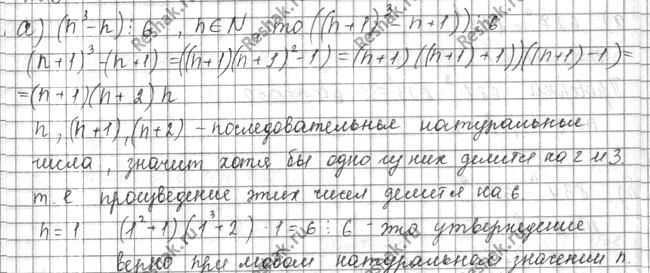 а) (n³-n) ⋮ 6 , n∈N то ((n+1)³-n+1)) ⋮ 6
(n+1)³-(n+1)=((n+1)(n+1)²-1)=(n+1)((n+1)+1))((n+1)-1)=
=(n+1)(n+2)n
n, (n+1), (n+2) - последовательные натуральные
числа, значит хотя бы одно из них делится на 2 и 3.
т.е произведение этих чисел делится на 6
n=1 (1²+1)(1³+2)·1=6 ⋮ 6 - это утверждение
верно при любом натуральном значении n.